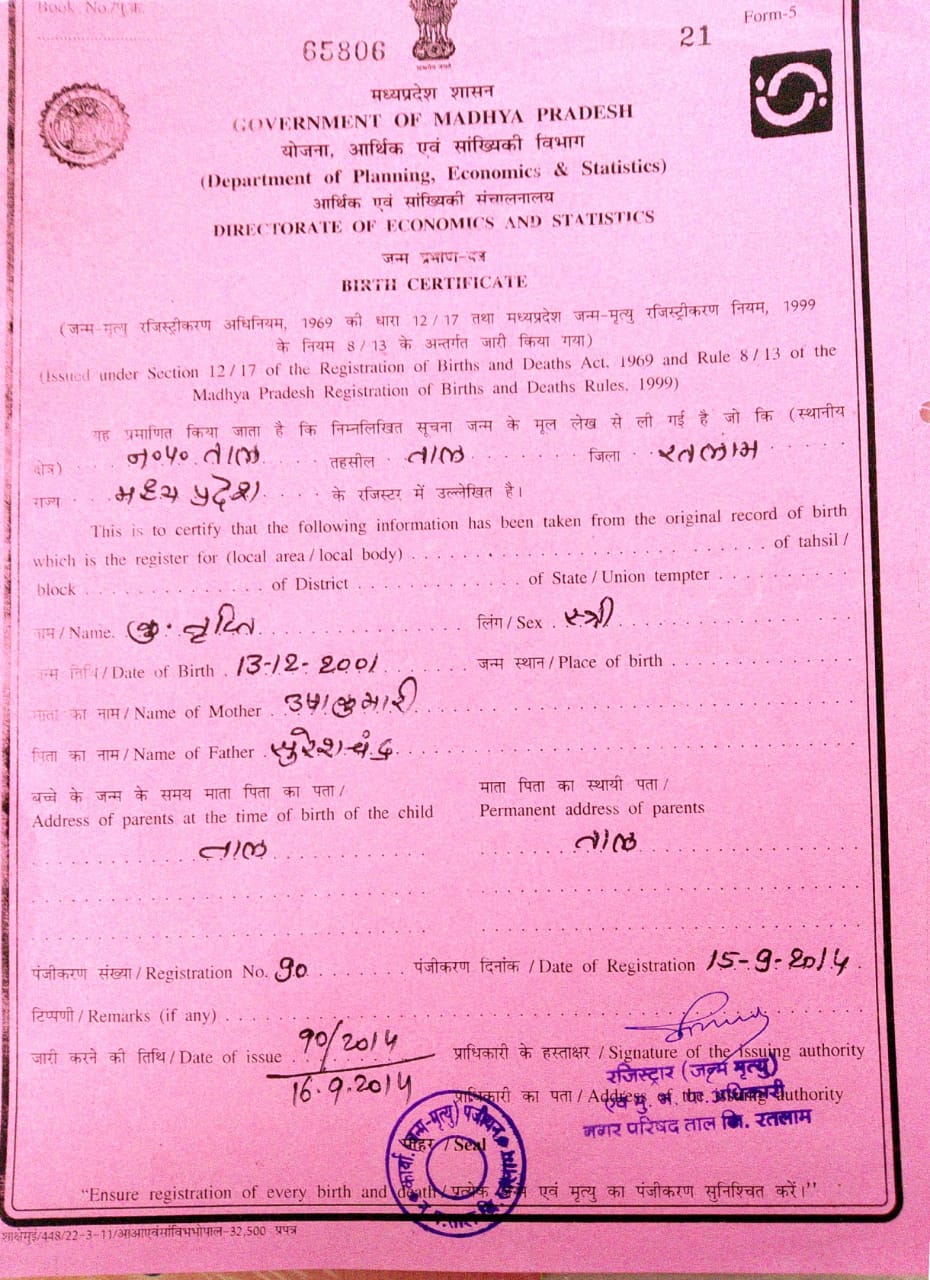 Book No./पु.क्र.
65806
21
Form-5
मध्यप्रदेश शासन
GOVERNMENT OF MADHYA PRADESH
योजना, आर्थिक एवं सांख्यिकी विभाग
(Department of Planning, Economics & Statistics)
आर्थिक एवं सांख्यिकी संचालनालय
DIRECTORATE OF ECONOMICS AND STATISTICS
जन्म प्रमाण-पत्र
BIRTH CERTIFICATE
(जन्म-मृत्यु रजिस्ट्रीकरण अधिनियम, 1969 की धारा 12/17 तथा मध्यप्रदेश जन्म-मृत्यु रजिस्ट्रीकरण नियम, 1999
के नियम 8/13 के अन्तर्गत जारी किया गया)
(Issued under Section 12/17 of the Registration of Births and Deaths Act, 1969 and Rule 8/13 of the
Madhya Pradesh Registration of Births and Deaths Rules, 1999)
यह प्रमाणित किया जाता है कि निम्नलिखित सूचना जन्म के मूल लेख से ली गई है जो कि (स्थानीय
क्षेत्र) न०प० ताल तहसील ताल जिला रतलाम
राज्य मध्य प्रदेश के रजिस्टर में उल्लेखित है।
This is to certify that the following information has been taken from the original record of birth
which is the register for (local area/local body) of tahsil/
block of District of State/Union tempter
नाम/Name. कु. तृप्ति लिंग/Sex स्त्री
जन्म तिथि/Date of Birth 13-12-2001 जन्म स्थान/Place of birth
माता का नाम/Name of Mother उषाकुमारी
पिता का नाम/Name of Father सुरेशचंद्र
बच्चे के जन्म के समय माता पिता का पता/ माता पिता का स्थायी पता/
Address of parents at the time of birth of the child Permanent address of parents
ताल ताल
पंजीकरण संख्या/Registration No. 90 पंजीकरण दिनांक/Date of Registration 15-9-2014
टिप्पणी/Remarks (if any)
जारी करने की तिथि/Date of issue 90/2014 प्राधिकारी के हस्ताक्षर/Signature of the issuing authority
16.9.2014
रजिस्ट्रार (जन्म मृत्यु)
प्राधिकारी का पता/Address of the issuing authority
एवं मु. न. पा. अधिकारी
नगर परिषद ताल जि. रतलाम
मोहर /Seal
कार्या. (जन्म-मृत्यु) पंजीयन
"Ensure registration of every birth and death/प्रत्येक जन्म एवं मृत्यु का पंजीकरण सुनिश्चित करें।"